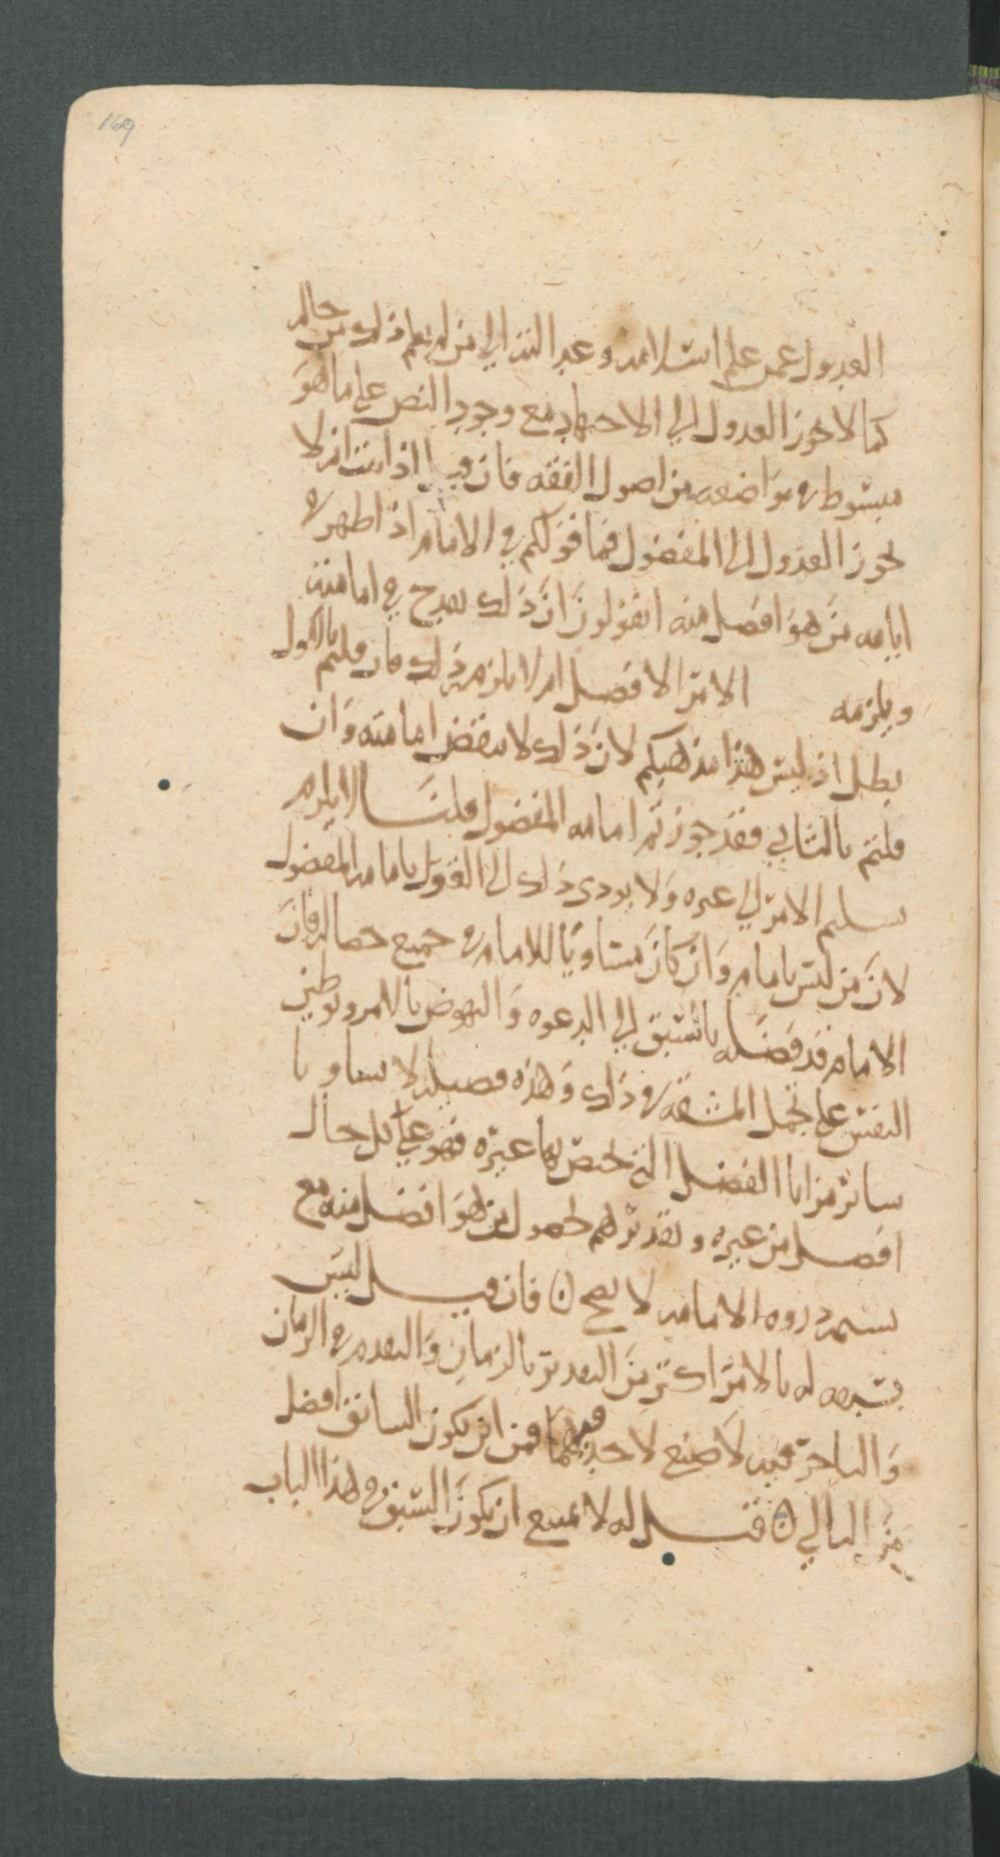 169
العدول عمن علم استلامه وعدالته الي من لم يعلم ذلك من حاله
كما لا يجوز العدول الي الاجتهاد مع وجود النص علي ما هو
مبسوط في مواضعه من اصول الفقه فان قيل اذا ثبت انه لا
يجوز العدول الى المفضول فما قولكم في الامام اذا ظهر في
ايامه من هو افضل منه اتقولون ان ذلك يقدح في امامته
ويلزمه الامر الافضل ام لا يلزمه ذلك فان قلتم بالاول
بطل اذ ليس هذا مذهبكم لان ذلك لا ينقض امامته وان
قلتم بالثاني فقد جوزتم امامه المفضول قلنا لا يلزم
تسليم الامر الي غيره ولا يودى ذلك الى القول بامامه المفضول
لان من ليس بامام وان كان مساويا للامام في جميع خصاله فان
الامام قد فضله بالسبق الي الدعوه والنهوض بالامر وتوطين
النفس علي تحمل المشقه في ذلك وهذه فضيله لا يساويها
سائر مزايا الفضل التي يختص بها غيره فهو علي كل حال
افضل من غيره وتقديرهم لحصول من هو افضل منه مع
تسنمه ذروه الامامه لا يصح ن فان قيل ليس
سبقه له بالامر اكثر من التقدم بالزمان والتقدم في الزمان
والتاخر فيه لا صنع لاحد فيهما فمن اين يكون السابق افضل
من التالي ن قيل له لا يمتنع ان يكون السبق في هذا الباب